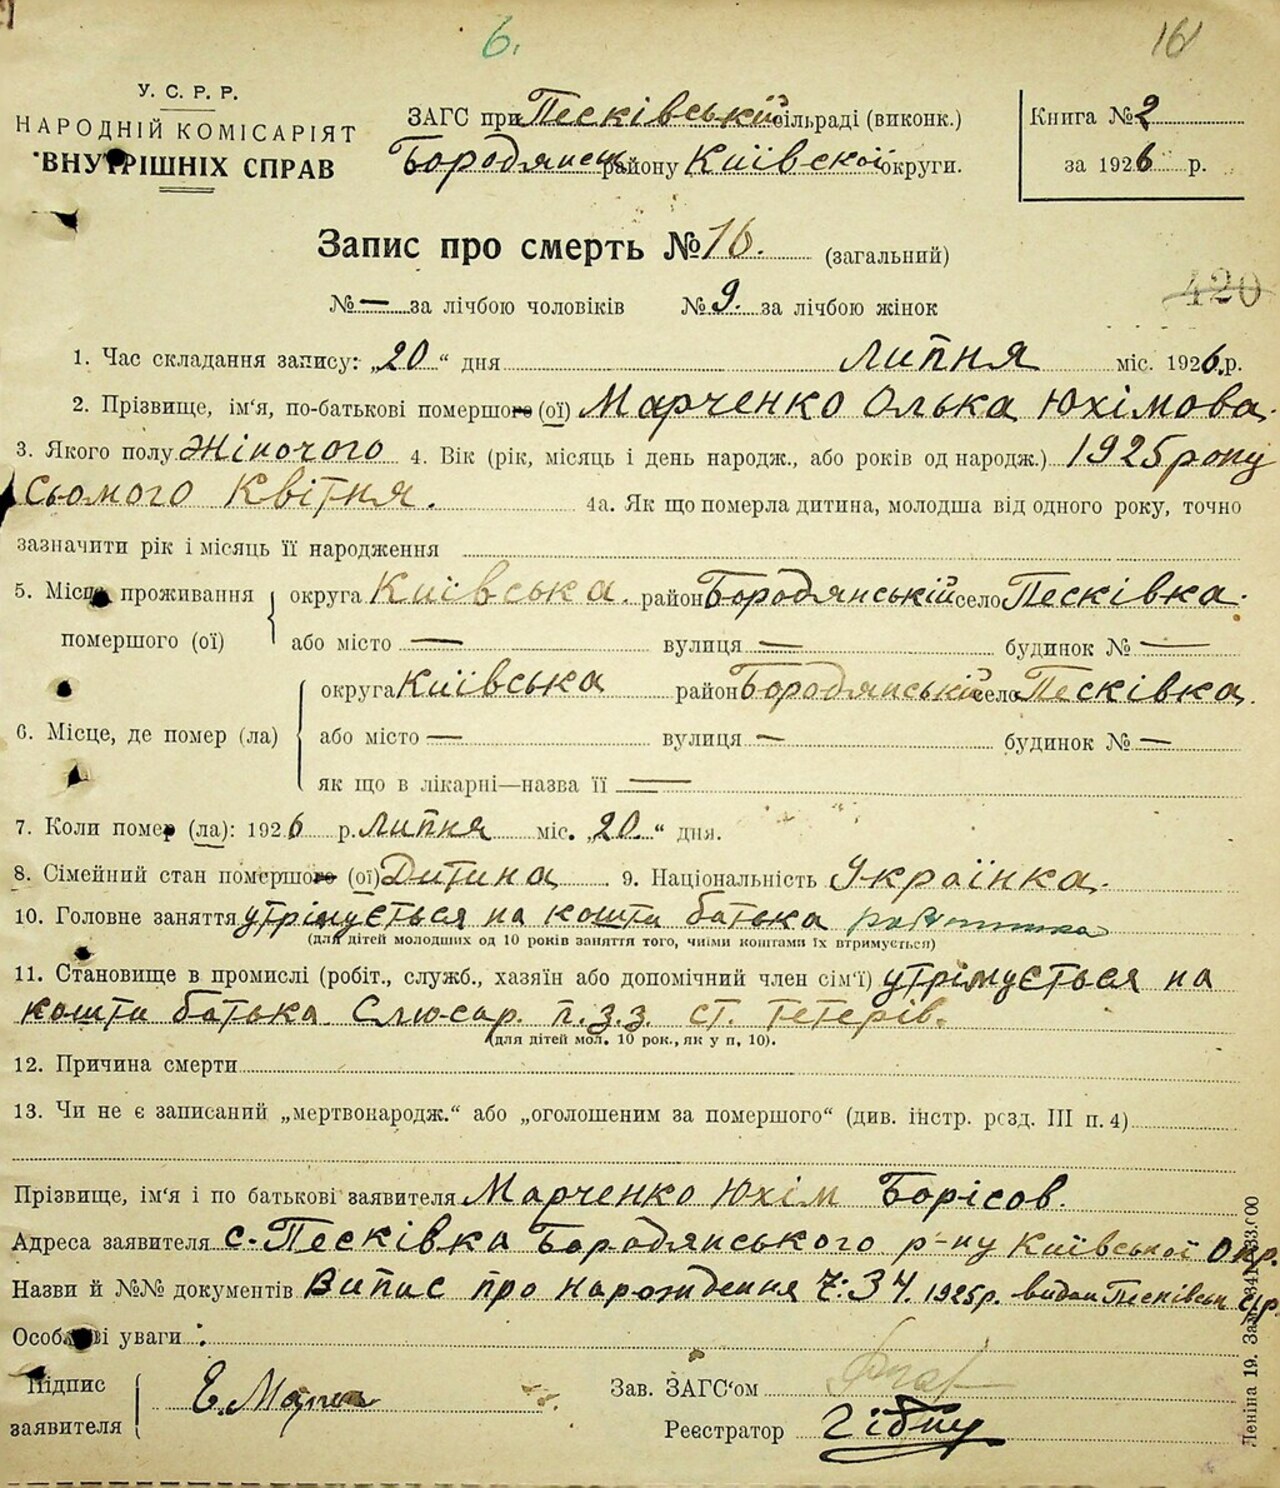 6.
16
У. С. Р. Р.
НАРОДНІЙ КОМІСАРІЯТ
ВНУТРІШНІХ СПРАВ
ЗАГС при Песківській сільраді (виконк.)
Бородянськ району Київскої округи.
Книга № 2
за 1926 р.
Запис про смерть № 16. (загальний)
420
№ — за лічбою чоловіків № 9. за лічбою жінок
1. Час складання запису: „20“ дня липня міс. 1926 р.
2. Прізвище, ім'я, по-батькові помершого (ої) Марченко Олька Юхімова.
3. Якого полу Жіночого 4. Вік (рік, місяць і день народж., або років од народж.) 1925 року
сьомого Квітня. 4а. Як що померла дитина, молодша від одного року, точно
зазначити рік і місяць її народження
5. Місце проживання помершого (ої) округа Київська. район Бородянській село Песківка.
або місто — вулиця — будинок № —
6. Місце, де помер (ла) округа Київська район Бородянській село Песківка.
або місто — вулиця — будинок № —
як що в лікарні—назва її —
7. Коли помер (ла): 1926 р. липня міс. „20.“ дня.
8. Сімейний стан помершого (ої) Дитина 9. Національність Українка.
10. Головне заняття утрімується на кошти батька
(для дітей молодших од 10 років заняття того, чиїми коштами їх втримується)
11. Становище в промислі (робіт., служб., хазяїн або допомічний член сім'ї) утрімується на
кошти батька Слюсар. п.з.з. ст. Тетерів.
(для дітей мол. 10 рок., як у п, 10).
12. Причина смерти
13. Чи не є записаний „мертвонародж.“ або „оголошеним за помершого“ (див. інстр. розд. III п. 4)
Прізвище, ім'я і по батькові заявителя Марченко Юхім Борісов.
Адреса заявителя с. Песківка Бородянського р-ну Київської Окр.
Назви й №№ документів Випис про нарождення Ч: 34. 1925 р. видан Песківськ с/р
Особливі уваги :
Підпис заявителя Е. Марч
Зав. ЗАГС'ом
Реєстратор
Леніна 19. Зам.